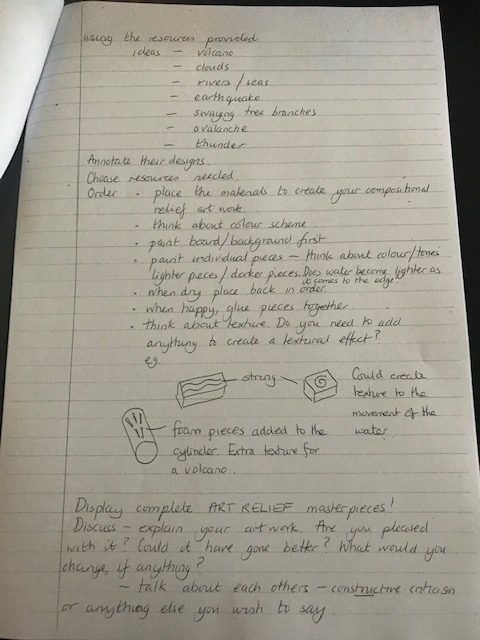 using the resources provided
ideas – volcano
– clouds
– rivers / seas
– earthquake
– swaying tree branches
– avalanche
– thunder
Annotate their designs
Choose resources needed
Order • place the materials to create your compositional
relief art work.
• think about colour scheme
• paint board/background first
• paint individual pieces – think about colour/tones
lighter pieces / darker pieces. Does water become lighter as
it comes to the edge.
• when dry place back in order
• when happy, glue pieces together
• think about texture. Do you need to add
anything to create a textural effect?
eg
string
Could create
texture to the
movement of the
water
foam pieces added to the
cylinder. Extra texture for
a volcano.
Display complete ART RELIEF masterpieces!
Discuss – explain your artwork. Are you pleased
with it? Could it have gone better? What would you
change, if anything?
~ talk about each others – constructive criticism
or anything else you wish to say